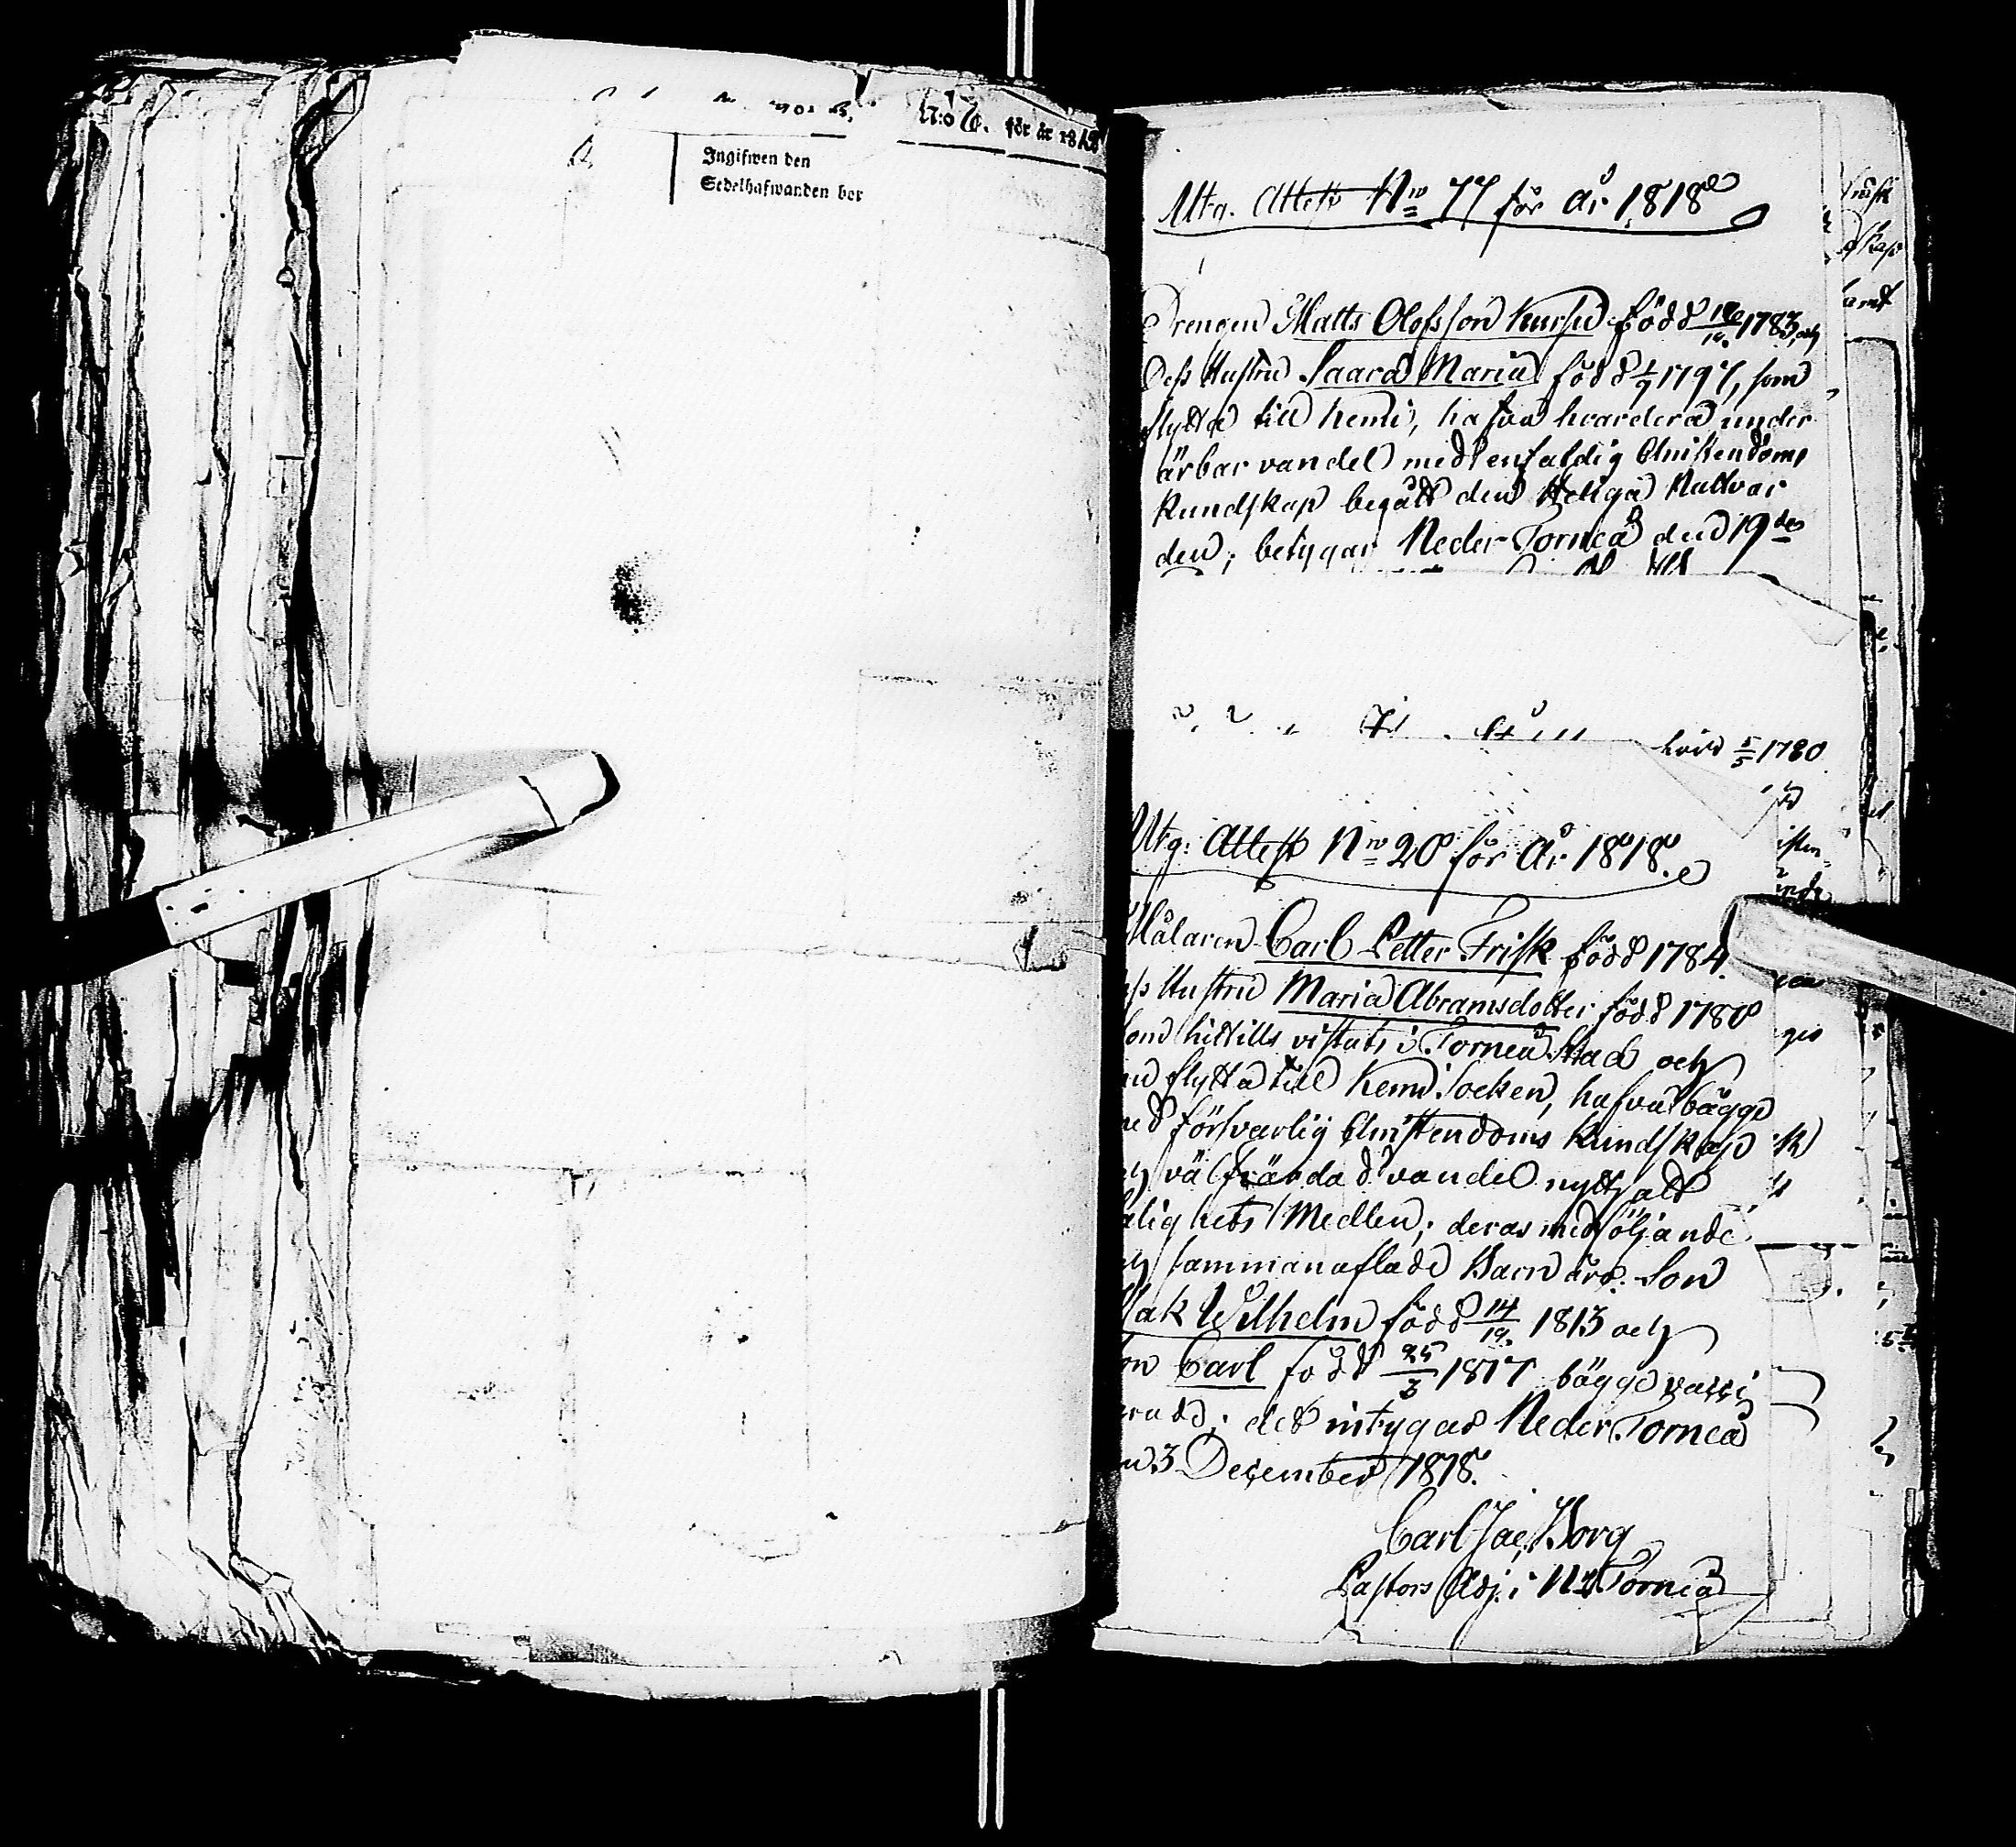 N:o 6. för år 1818
Ingifwen den
Sedelhafwanden ber
Utg. Attest Nro 77 för år 1818
Drengen Matts Olofsson född 1783, och
Dess Hustru Saara Maria född 1/9 1797, som
flytta till Kemi, hafva hvardera under
ärbar vandel med enfaldig Christendoms
Kundskap begått den Heliga Nattvar
den; betygar Neder-Torneå den 19de
5/5 1780
Utg: Attest Nro 20 för År 1818.
Målaren Carl Petter Frisk född 1784.
Hustru Maria Abramsdotter född 1780
som hittills vistats i Torneå Stad och
nu flytta till Kemi Socken, hafva bägge
med försvarlig Christendoms Kundskap
och välfrärdad vandel nyttjatt
Salighets Medlen; deras medföljande
och sammanaflade Barn äro: Son
Isak Wilhelm född 14/10 1813 och
Son Carl född 25/3 1817 bägge vacci
nerade; det intygas Neder Torneå
den 3 December 1818.
Carl Jac. Borg
Pastors Adj. i Nr Torneå